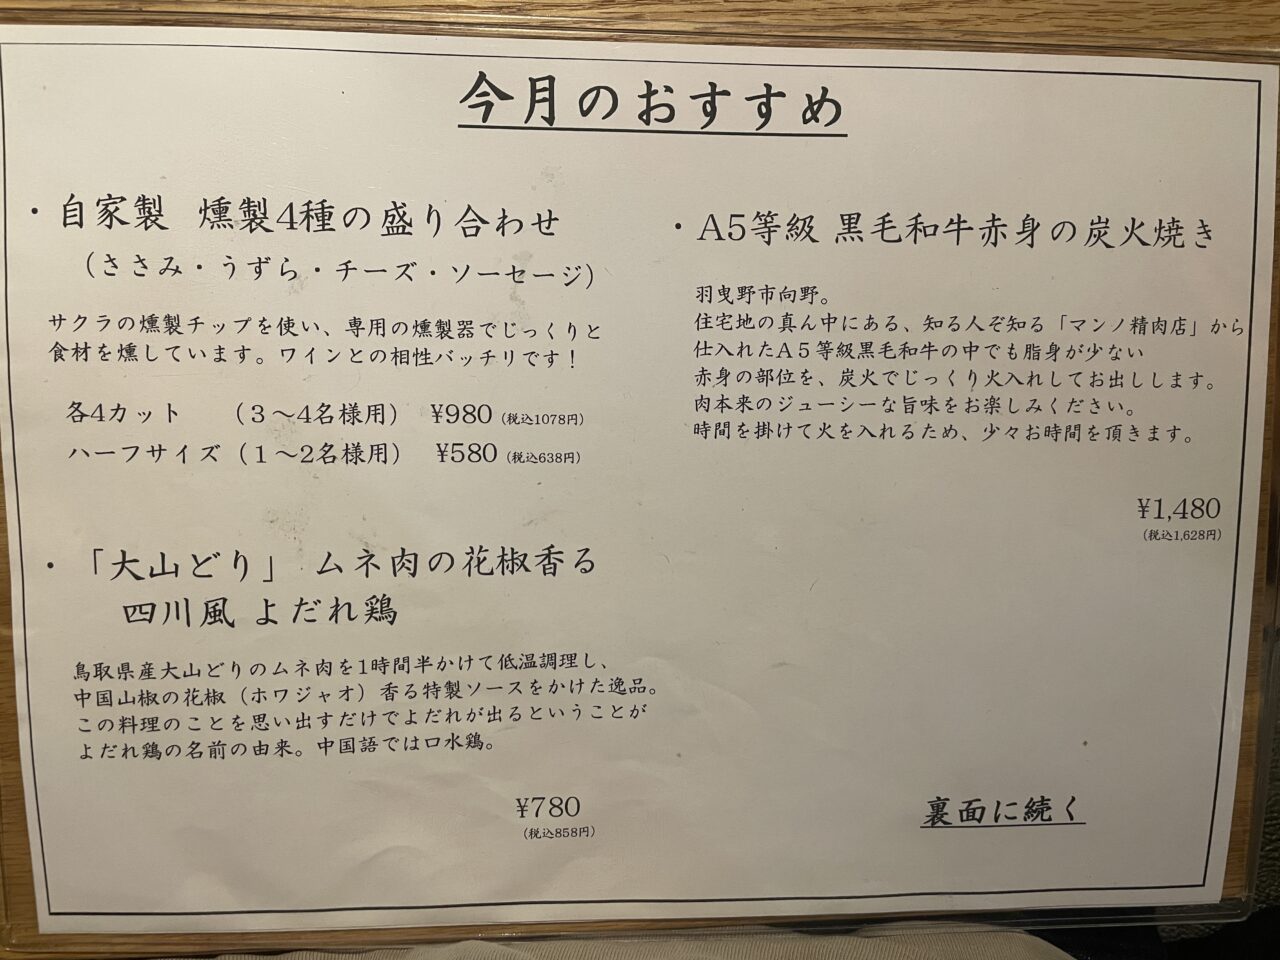 今月のおすすめ
・自家製 燻製4種の盛り合わせ
（ささみ・うずら・チーズ・ソーセージ）
サクラの燻製チップを使い、専用の燻製器でじっくりと
食材を燻しています。ワインとの相性バッチリです！
各4カット （3～4名様用） ¥980（税込1078円）
ハーフサイズ（1～2名様用） ¥580（税込638円）
・「大山どり」 ムネ肉の花椒香る
四川風 よだれ鶏
鳥取県産大山どりのムネ肉を1時間半かけて低温調理し、
中国山椒の花椒（ホワジャオ）香る特製ソースをかけた逸品。
この料理のことを思い出すだけでよだれが出るということが
よだれ鶏の名前の由来。中国語では口水鶏。
¥780
（税込858円）
・A5等級 黒毛和牛赤身の炭火焼き
羽曳野市向野。
住宅地の真ん中にある、知る人ぞ知る「マンノ精肉店」から
仕入れたA５等級黒毛和牛の中でも脂身が少ない
赤身の部位を、炭火でじっくり火入れしてお出しします。
肉本来のジューシーな旨味をお楽しみください。
時間を掛けて火を入れるため、少々お時間を頂きます。
¥1,480
（税込1,628円）
裏面に続く